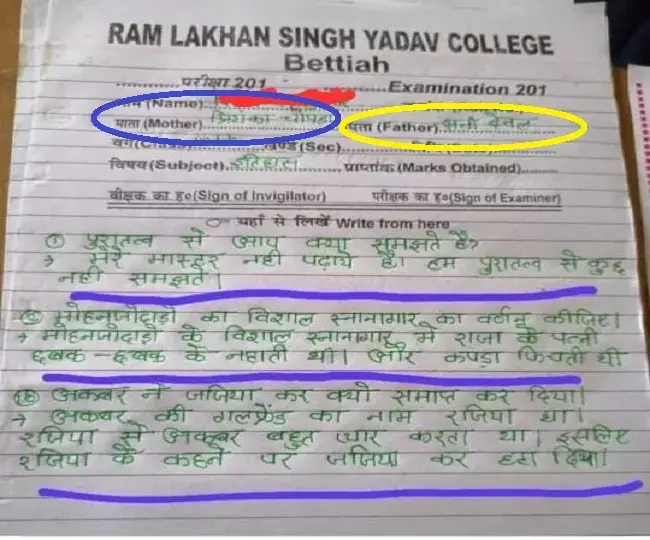 RAM LAKHAN SINGH YADAV COLLEGE
Bettiah
परीक्षा 201 Examination 201
(Name)
माता (Mother) प्रियंका चोपड़ा पिता (Father) सनी देवल
(Sec)
विषय (Subject) इतिहास प्राप्तांक (Marks Obtained)
वीक्षक का ह०(Sign of Invigilator) परीक्षक का ह०(Sign of Examiner)
यहाँ से लिखें Write from here
① पुरातत्व से आप क्या समझते हैं?
→ मेरे मास्टर नही पढ़ाये हैं। हम पुरातत्व से कुछ
नही समझते।
मोहनजोदाड़ो का विशाल स्नानागार का वर्णन कीजिए।
→ मोहनजोदाड़ो के विशाल स्नानागार मे राजा के पत्नी
छबक-छबक के नहाती थी। और कपड़ा फिचती थी
अकबर ने जजिया कर क्यों समाप्त कर दिया।
→ अकबर की गलफ्रेंड का नाम रजिया था।
रजिया से अकबर बहुत प्यार करता था। इसलिए
रजिया के कहने पर जजिया कर हटा दिया।